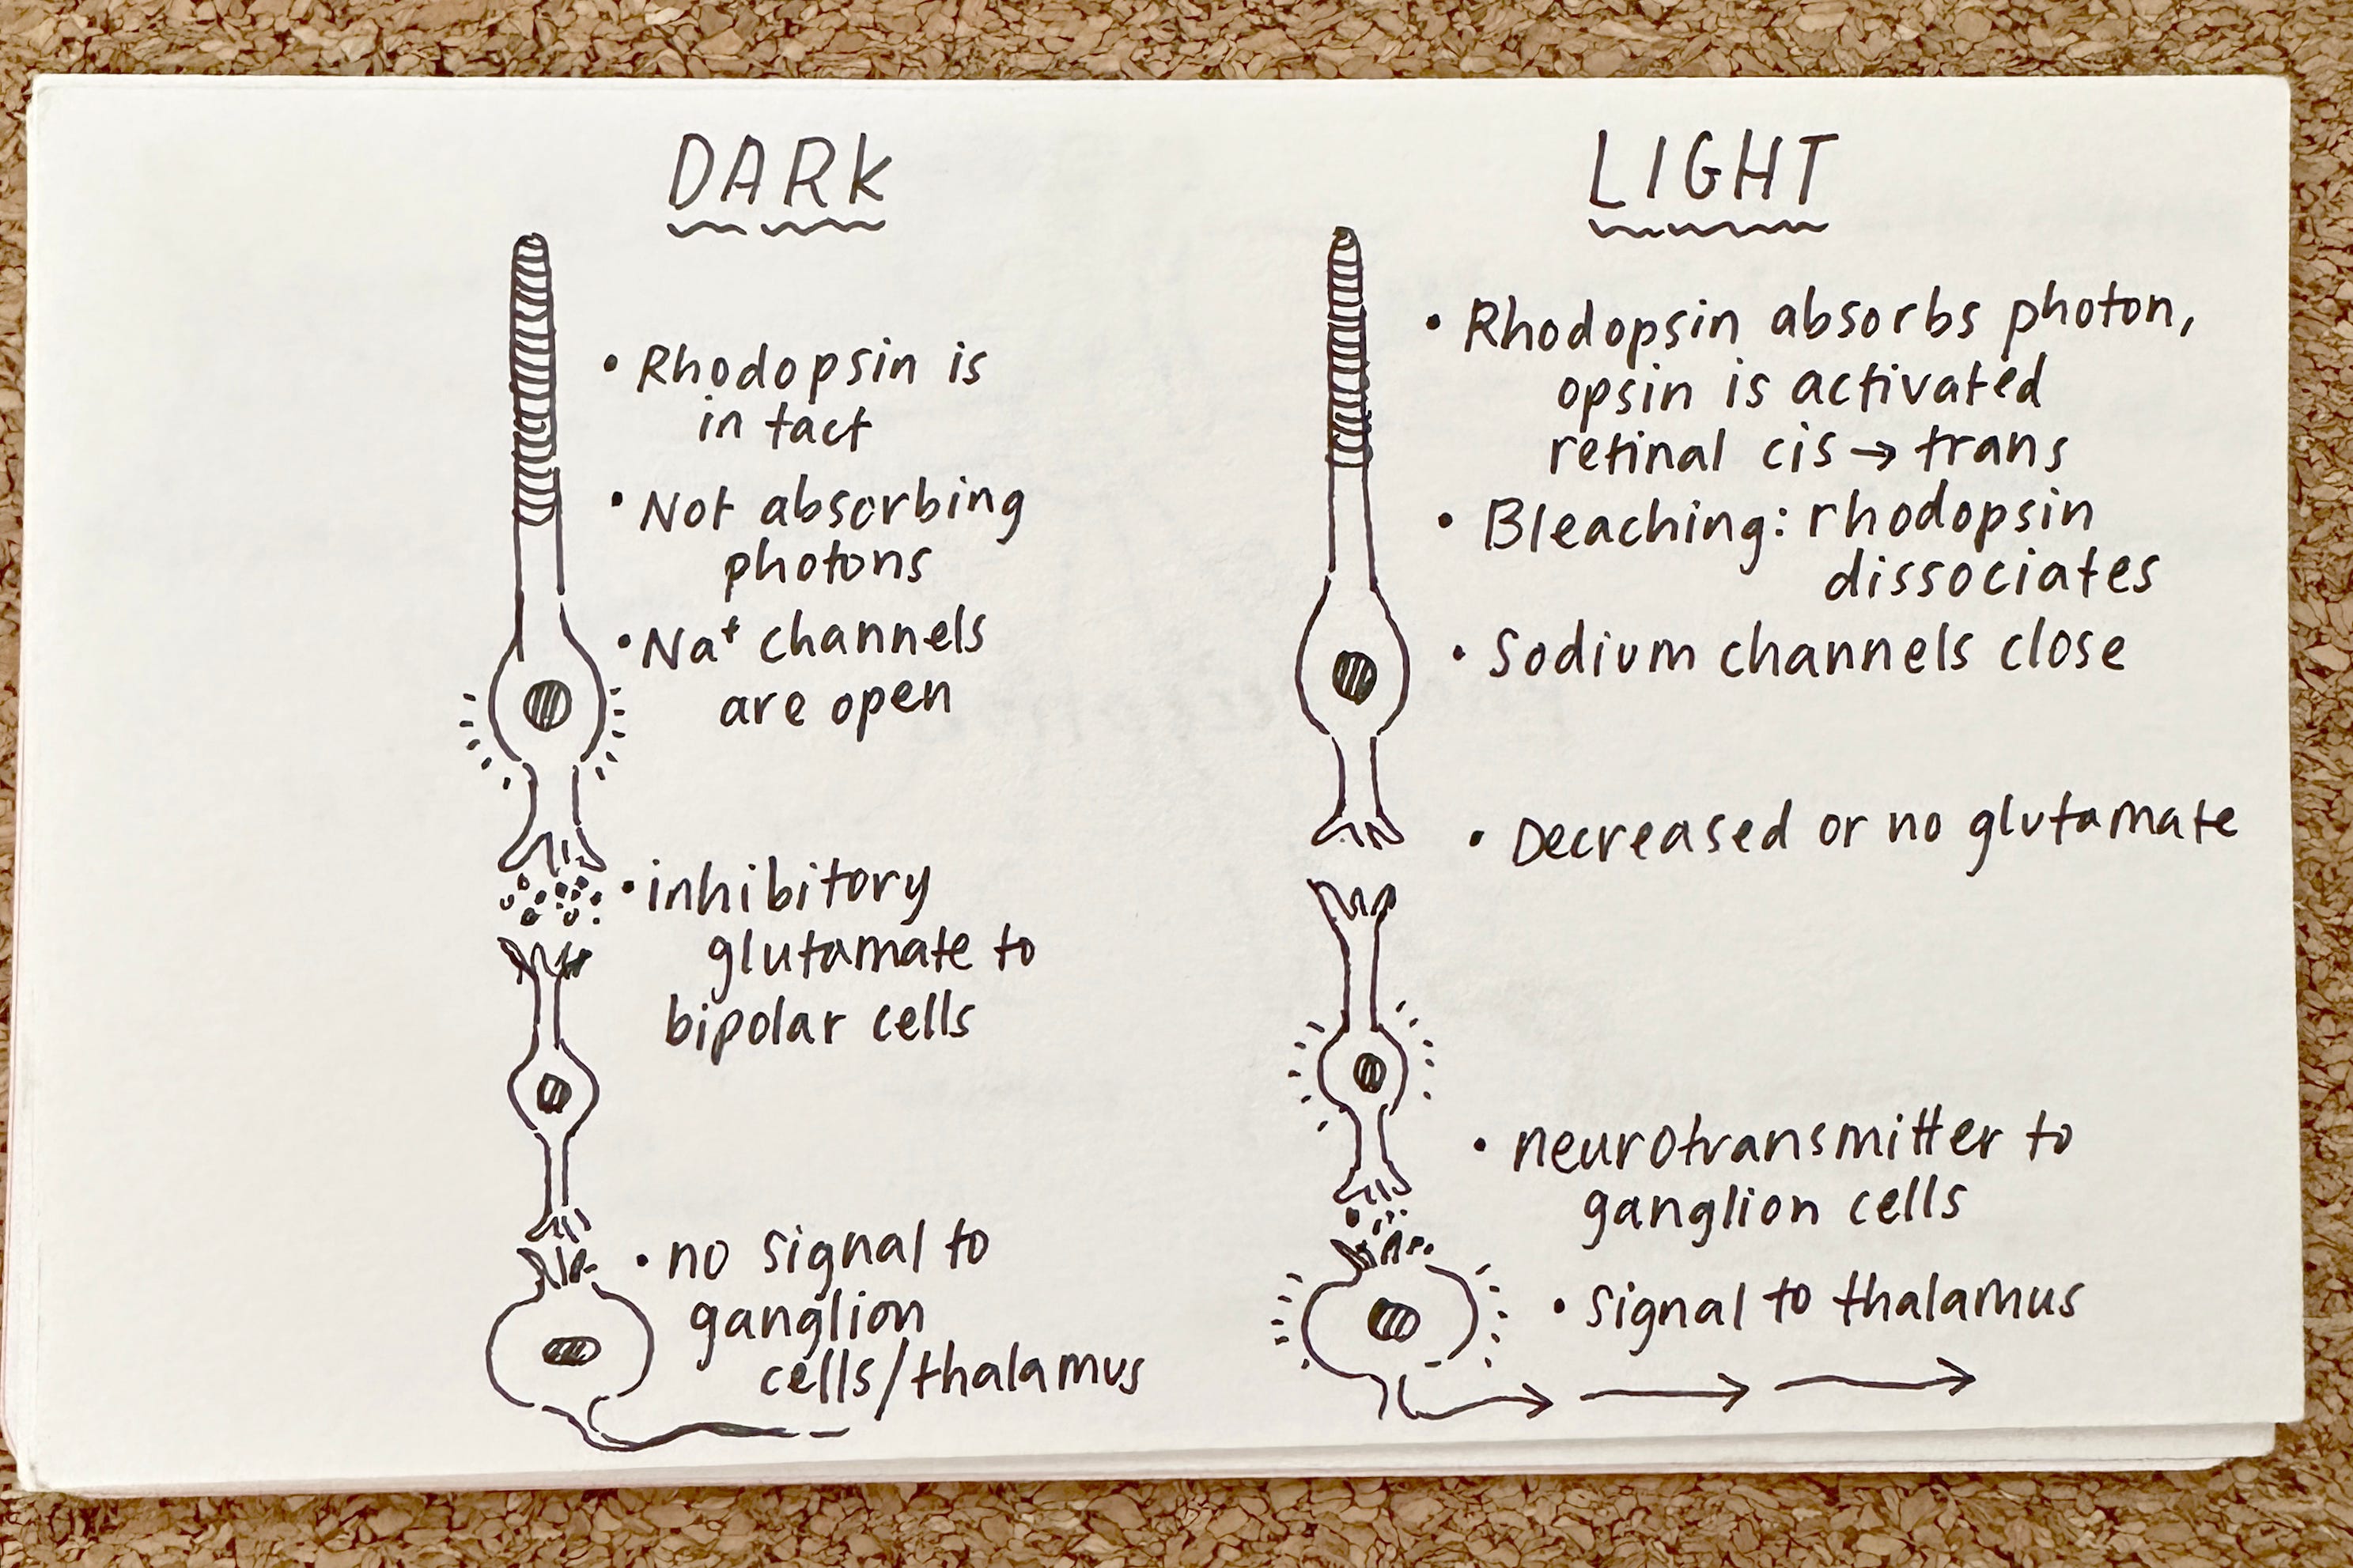 DARK
• Rhodopsin is
in tact
• Not absorbing
photons
• Na⁺ channels
are open
• inhibitory
glutamate to
bipolar cells
• no signal to
ganglion
cells/thalamus
LIGHT
• Rhodopsin absorbs photon,
opsin is activated
retinal cis → trans
• Bleaching: rhodopsin
dissociates
• Sodium channels close
• Decreased or no glutamate
• neurotransmitter to
ganglion cells
• signal to thalamus